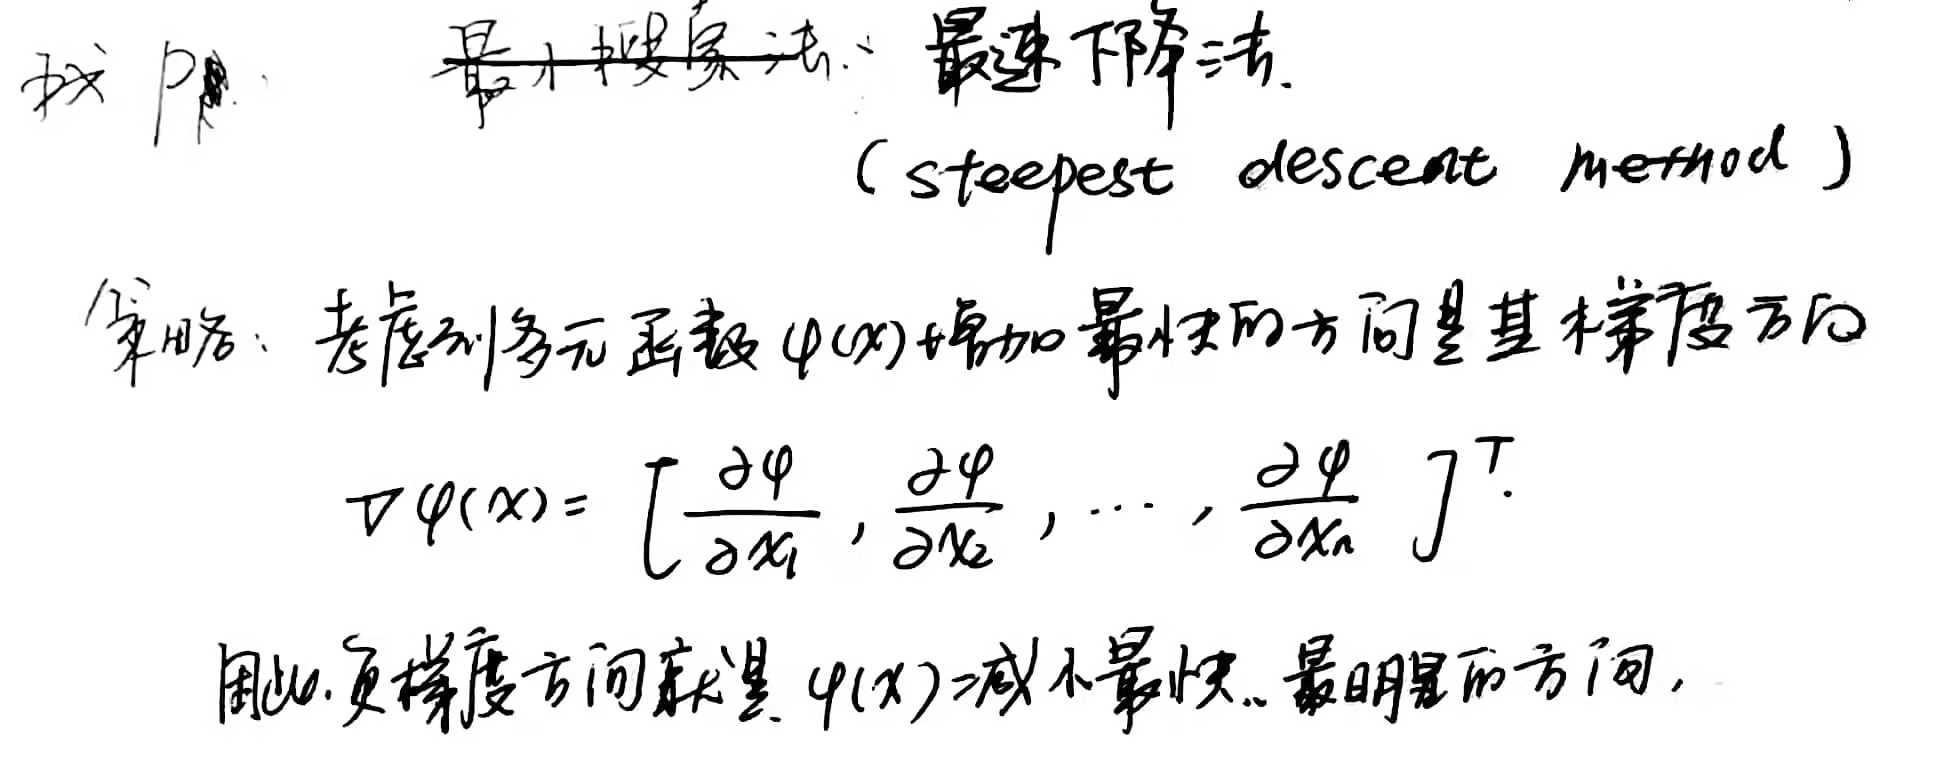 找 P 最小搜索法: 最速下降法.
(steepest descent method)
策略: 考虑到多元函数 φ(x) 增加最快的方向是其梯度方向
∇φ(x) = [ ∂φ/∂x₁ , ∂φ/∂x₂ , ⋯ , ∂φ/∂xₙ ]ᵀ.
因此.负梯度方向就是 φ(x) 减小最快..最明显的方向.